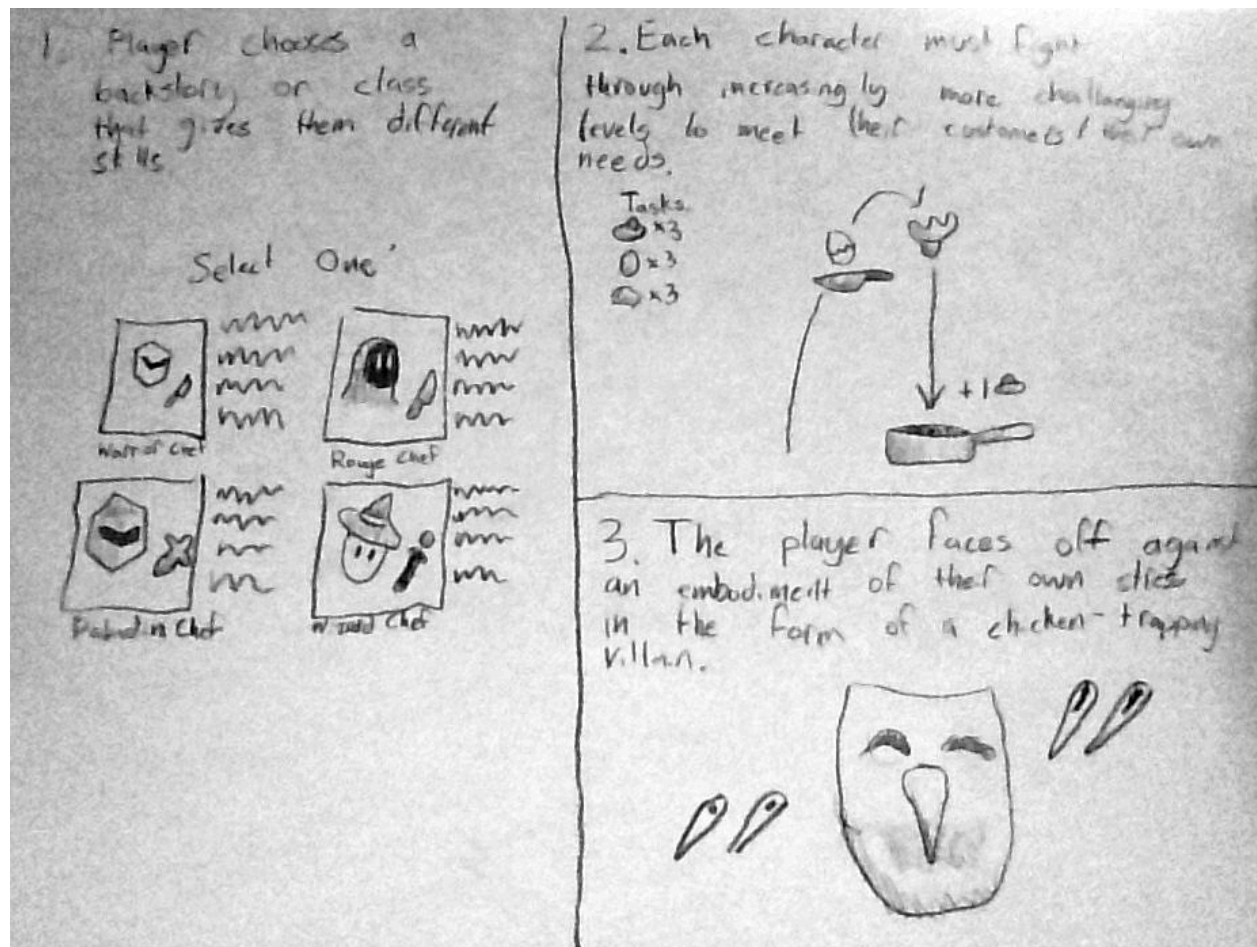 1. Player chooses a
backstory or class
that gives them different
skills
Select One
Warrior Chef
Rouge Chef
Paladin Chef
Wizard Chef
2. Each character must fight
through increasingly more challanging
levels to meet their customers / their own
needs.
Tasks
x3
x3
x3
+1
3. The player faces off against
an embodiment of their own stress
in the form of a chicken-trapping
villain.